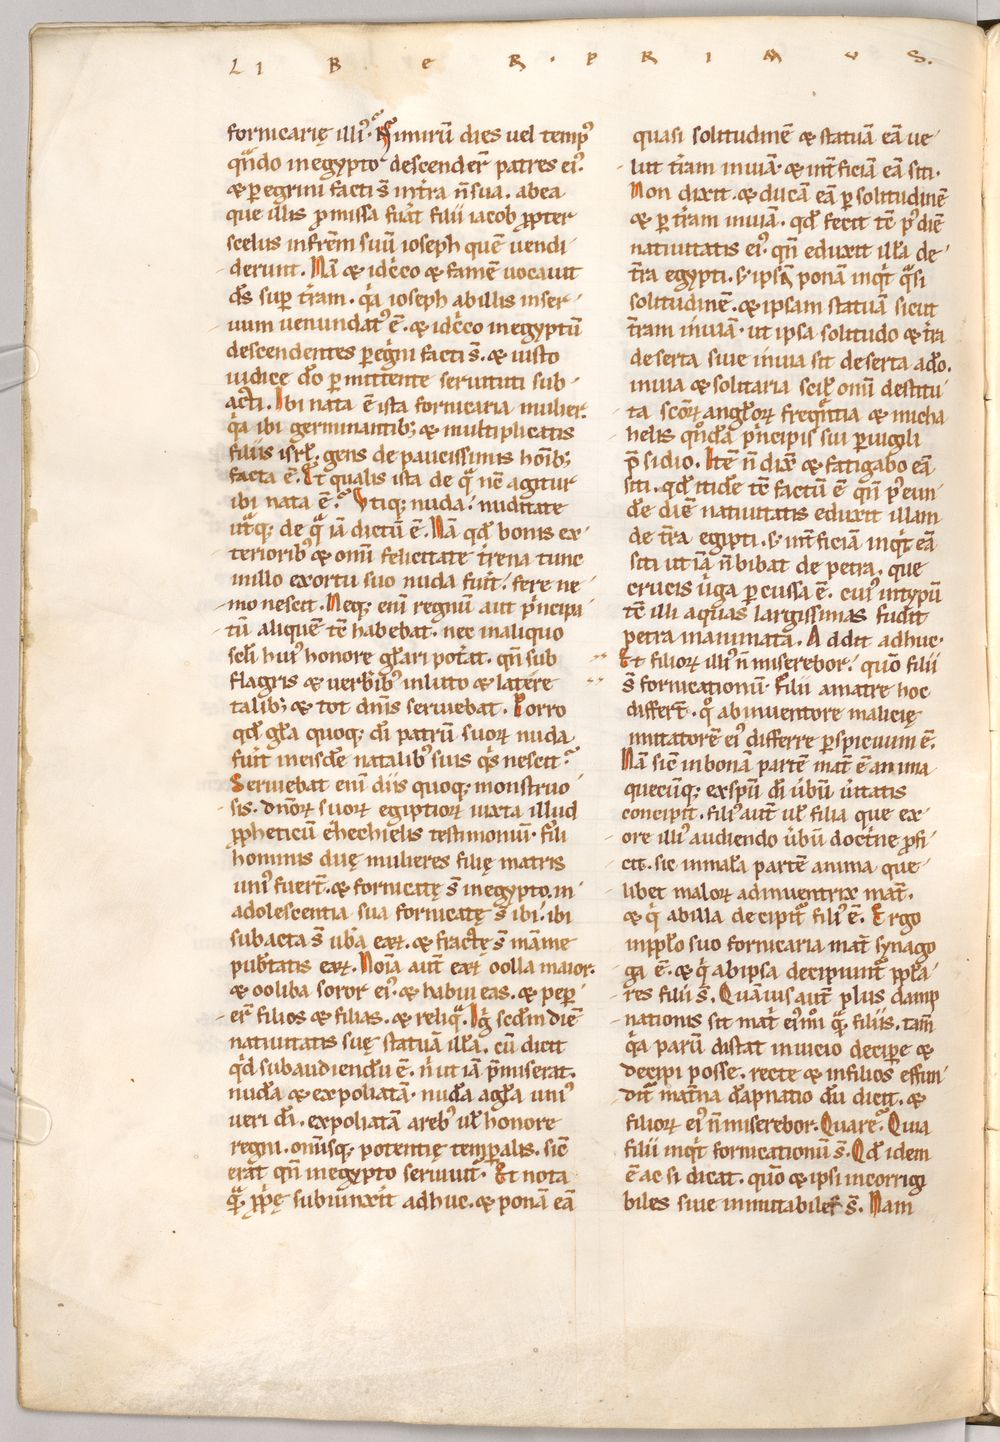 LI B E R · P R I M V S.
fornicarię illiꝰ. Nimirū dies uel tempꝰ
qn̄do in egyptō descender̄t patres eiꝰ
& peregrini facti s̄ in t̄ra n̄ sua. abea
que illis ꝓmissa fuat filii iacob ꝓpter
scelus in frēm suū ioseph quē uendi
derunt. Nā & idcͦco & famē uocauit
ds̄ sup̄ t̄ram. qͥa ioseph ab illis in ser
uum uenundatꝰ ē. & idcͦco in egyptū
descendentes p̄egͥni facti s̄. & iusto
iudice dō p̄mittente seruituti sub
acti. Ibi nata ē ista fornicaria mulier.
qͥa ibi germinantib; & multiplicatis
filiis isrł. gens de paucissimis hoīb;
facta ē. Et qualis ista de qͣ nē agitur
ibi nata ē? Vtiq; nuda. nuditate
utͣq; de qͣ iā dictū ē. Nā qd̄ bonis ex
terioribꝰ & omī felicitate t̄rena tunc
in illo exortu suo nuda fuīt. fere ne
mo nescit. Neq; eni regnum aut pͥncipa
tū aliquē tē habebat. nec in aliquo
scłi huiꝰ honore głari potāt. qn̄ sub
flagris & uerb̄ibꝰ in luto & latere
talib; & tot dn̄is seruiebat. Porro
qd̄ gr̄a quoq; dī patrū suoꝝ nuda
fuīt in eisdē natalibꝰ suis qͥs nescit?
Seruiebat eni diis quoq; monstruo
sis. dn̄oꝝ suoꝝ egiptioꝝ iuxta illud
ꝓpheticū ehechielis testimoniū. fili
hominis duę mulieres filię matris
uniꝰ fuer̄t. & fornicatę s̄ in egypto. in
adolescentia sua fornicatę s̄ ibi. ibi
subacta s̄ ub̄a eaꝝ. & fractę s̄ māme
pub̄tatis eaꝝ. Noīa aut̄ eaꝝ oolla maior.
& ooliba soror eiꝰ. & habui eas. & pep̄
er̄t filios & filias. & reliqͣ. Igͥ scd̄m diē
natiuitatis suę statuā illā. cū dicit
qd̄ subaudiendū ē. nͥ ut iā p̄miserat.
nudā & expoliatā. nudā agr̄a uniꝰ
ueri dī. expoliatā a rebꝰ uł honore
regni. omīsq; potentię temp̄alis. sic̄
erat qn̄ in egypto seruiuit. Et nota
qͣ ꝓprię subiunxit adhuc. & ponā eā
quasi solitudinē & statuā eā ue
lut t̄ram inuiā. & int̄ficiā eā siti.
Non dixit. & ducā eā p solitudinē
& p t̄ram inuiā. qd̄ fecit tē pꝰ diē
natiuitatis eiꝰ. qn̄ eduxit illā de
t̄ra egypti. s; ipsā ponā inqͥt qͣsi
solitudinē. & ipsam statuā sicut
t̄ram inuiā. ut ipsa solitudo & t̄ra
deserta siue inuia sit deserta a dō.
inuia & solitaria scił omī destitu
ta scōꝝ angłoꝝ freqͣntia & micha
helis qͦndā pͥncipis sui p̄uigili
p̄sidio. Itē n̄ dix̄ & fatigabo eā
siti. qd̄ itidē tē factū ē qn̄ pꝰ eun
dē diē natiuitatis eduxit illam
de t̄ra egipti. s; int̄ficiā inqͥt eā
siti ut iā n̄ bibat de petra. que
crucis uͥga p̄cussa ē. cuiꝰ in typū
tē illi aquas largissimas fudit
petra inanimata. Addit adhuc.
Et filioꝝ illiꝰ n̄ miserebor. quō filii
s̄ fornicationū. Filii a matre hoc
differt̄. qͦ ab inuentore malicię
imitatorē eiꝰ differre p̄spicuum ē.
Nā sic̄ in bonā partē mat̄ ē anima
quecūq; ex spū dī ūbū ūitatis
concipit. filiꝰ aut̄ uł filia que ex
ore illiꝰ audiendo ūbū doctͥne ꝓfi
cit. sic in malā partē anima que
libet maloꝝ adinuentrix mat̄.
& qͥ ab illa decipit̄ filiꝰ ē. Ergo
in ipło suo fornicaria mat̄ synago
ga ē. & qͥ ab ipsa decipiunt̄ ppła
res filii s̄. Quāuis aut̄ plus damp
nationis sit mat̄i eiꝰmōi qͣ filiis. tam̄
qͥa parū distat in uicio decip̄e &
decipi posse. recte & in filios effun
dit̄ mat̄na dāpnatio dū dicit. &
filioꝝ eiꝰ n̄ miserebor. Quare? Quia
filii inqͥt fornicationū s̄. Qd̄ idem
ē ac si dicat. quō & ipsi incorrigi
biles siue inmutabiles s̄. Nam